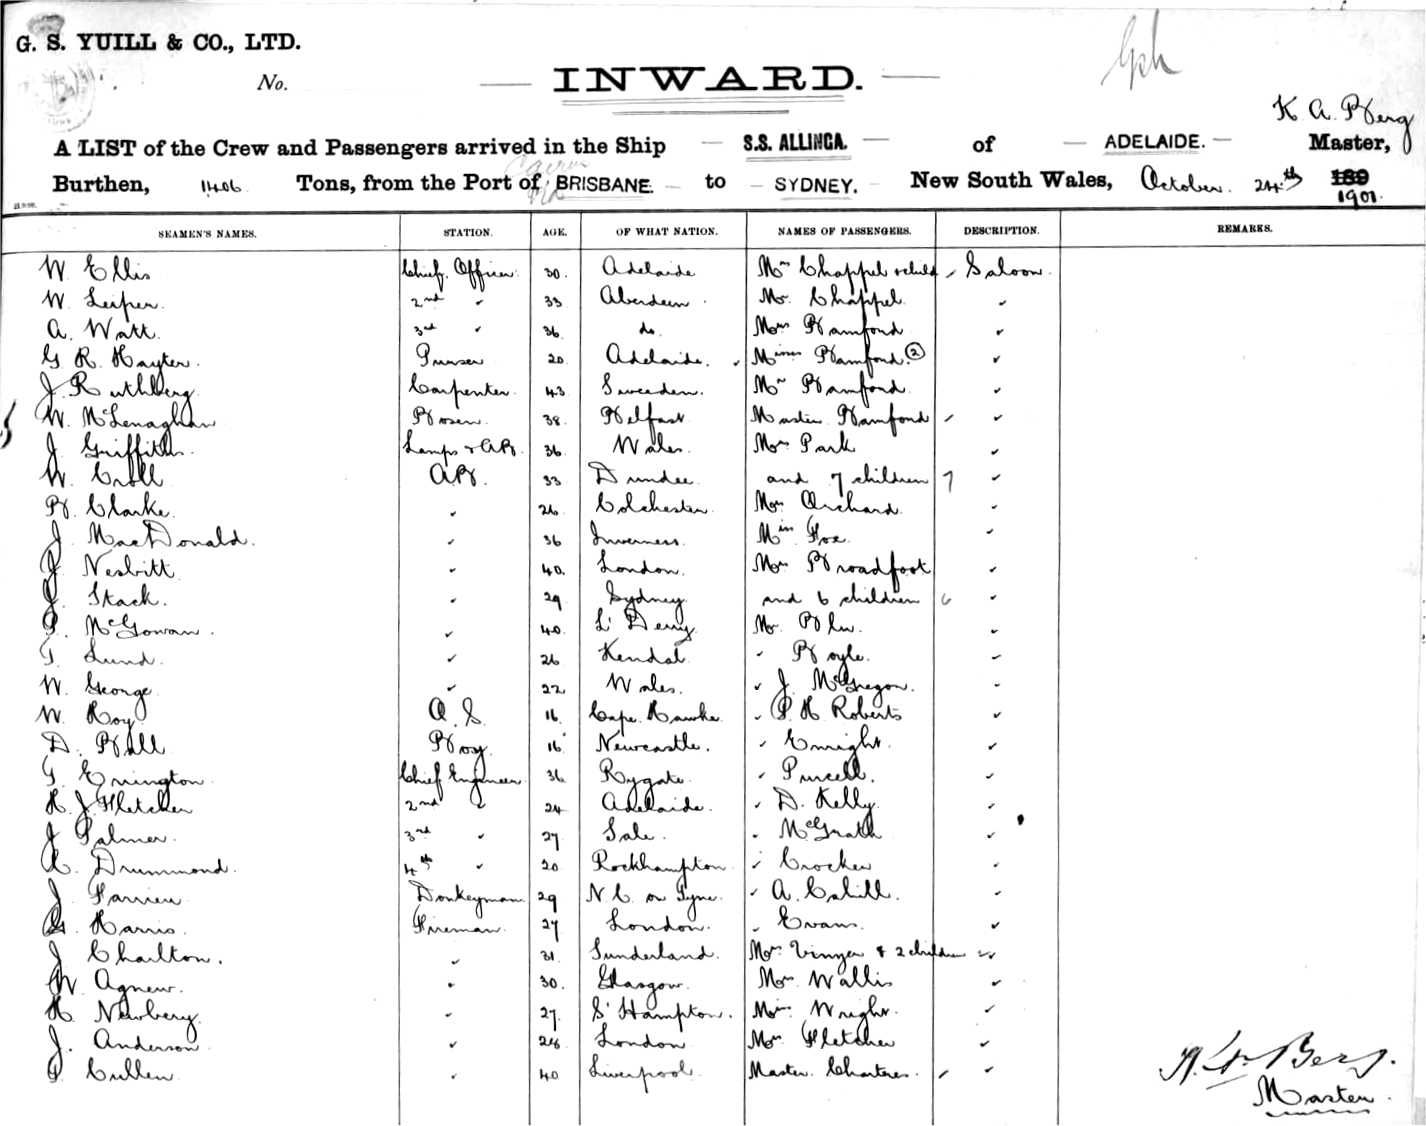 G. S. YUILL & CO., LTD.
No.
INWARD.
K A Berg
A LIST of the Crew and Passengers arrived in the Ship S.S. ALLINGA. of ADELAIDE. Master,
Burthen, 1406 Tons, from the Port of BRISBANE. to SYDNEY. New South Wales, October 24th 189 1901.
SEAMEN'S NAMES. STATION. AGE. OF WHAT NATION. NAMES OF PASSENGERS. DESCRIPTION. REMARKS.
W. Ellis Chief Officer 30. Adelaide Mrs Chappel & child Saloon.
W. Leiper 2nd " 33 Aberdeen. Mr. Chappel. "
A. Watt 3rd " 36 do. Mrs Bamford "
G R. Hayter. Purser 20. Adelaide. Misses Bamford (2) "
J. Ruthberg Carpenter 43 Sweeden. Mr Bamford "
W. McLenaghan Bosen. 38. Belfast Master Bamford "
J Griffiths. Lamps & AB. 36 Wales. Mrs Park "
W. Croll AB. 33 Dundee and 7 children 7 "
B. Clarke. " 26 Colchester. Mrs Orchard "
J. MacDonald. " 36 Inverness. Miss Foe "
J Nesbitt " 40. London. Mrs Broadfoot "
J. Stack. " 29 Sydney and 6 children 6 "
P. McGowan. " 40. L' Derry Mr. "
T. Lund. " 26 Kendal " Boyle. "
W. George " 22 Wales. " J. McGregor. "
W. Roy O.S. 16. Cape Hawke " P. H Roberts "
D. Ball Boy 16 Newcastle. " Enright. "
T. Errington Chief Engineer 36 Rygate " Purcell. "
H. J. Fletcher 2nd " 24 Adelaide. " D. Kelly "
J Palmer. 3rd " 27 Sale. " McGrath "
A. Drummond. 4th " 20 Rockhampton " Crocker "
J. Farrier Donkeyman 29 N. C. on Tyne. " A. Cahill. "
G. Harris. Fireman. 27 London. " Evans. "
J Charlton. " 31. Sunderland. Mrs Vinger & 2 children "
W. Agnew. " 30. Glasgow. Mrs Wallis "
H. Newbery. " 27. S' Hampton. Miss Wright. "
J. Anderson. " 28 London Mrs Fletcher "
P. Cullen " 40 Liverpool. Master Charteres. "
K. A. Berg.
Master.